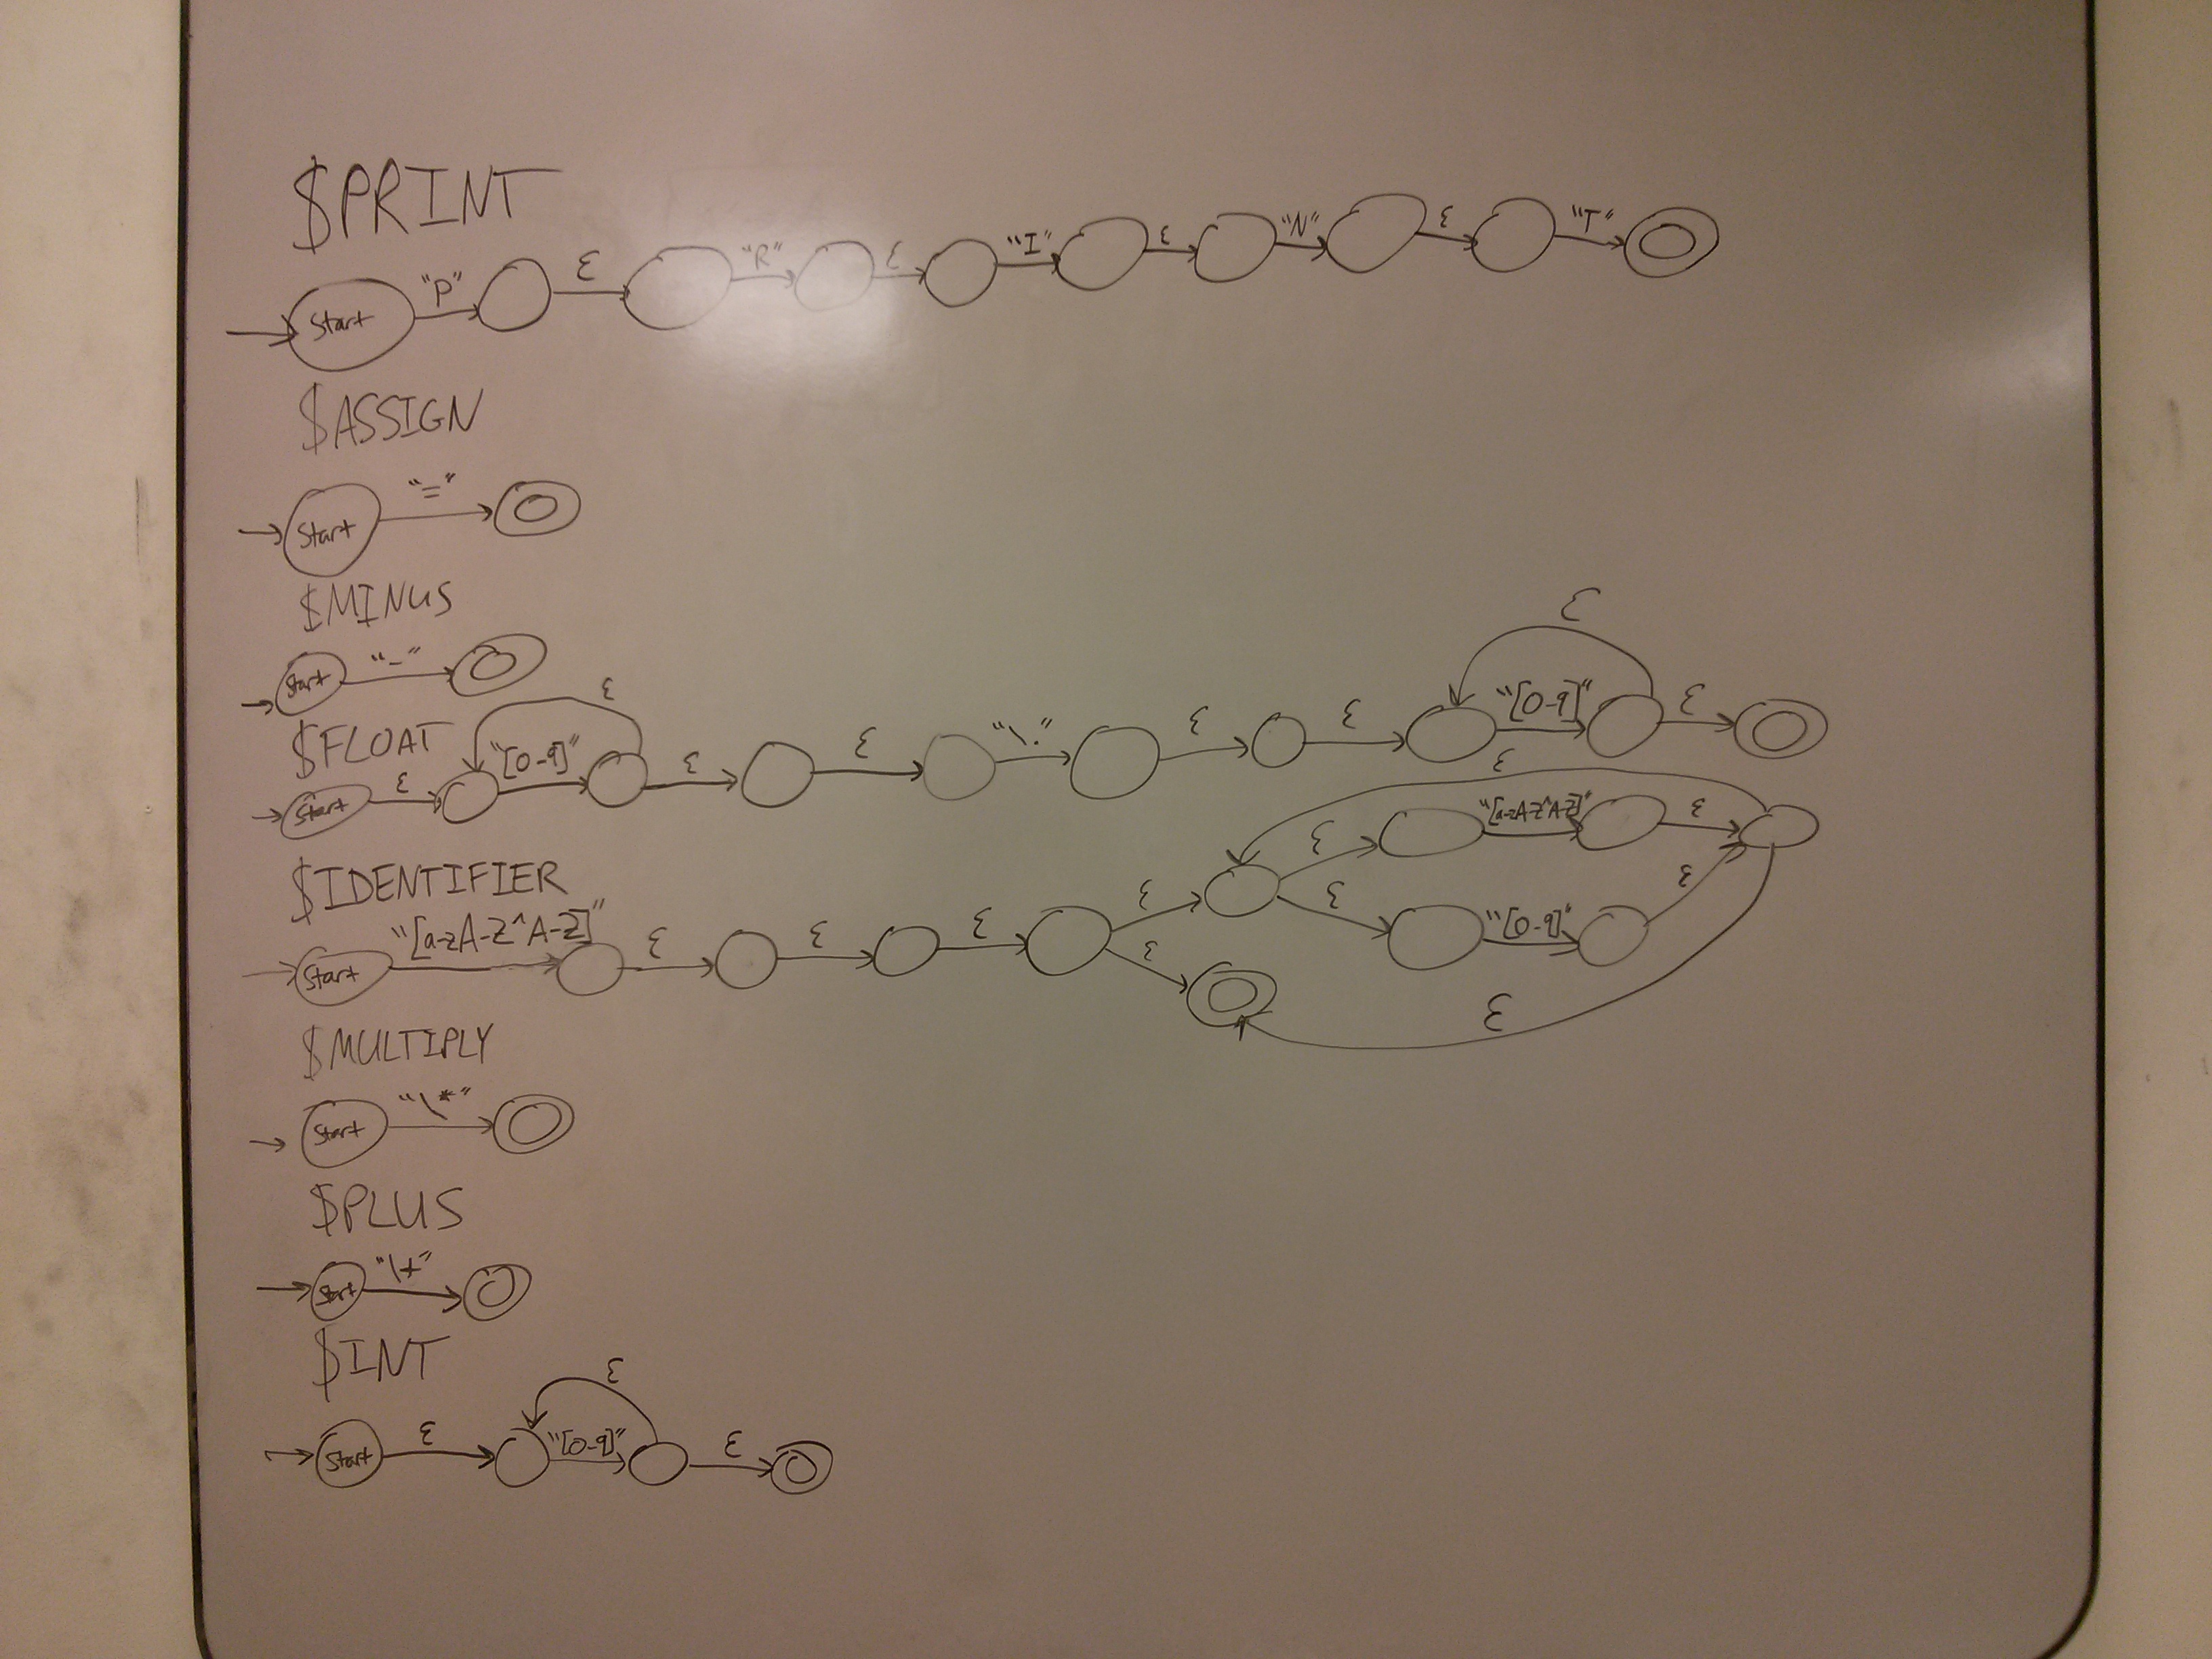 $PRINT
Start "P" ε ε "R" ε "I" ε "N" ε "T"
$ASSIGN
Start "="
$MINUS
Start "-"
$FLOAT
Start ε "[0-9]" ε ε ε "\." ε ε "[0-9]" ε ε
$IDENTIFIER
Start "[a-zA-Z^A-Z]" ε ε ε ε ε ε "[a-zA-Z^A-Z]" ε ε "[0-9]" ε ε ε
$MULTIPLY
Start "\*"
$PLUS
Start "\+"
$INT
Start ε "[0-9]" ε ε